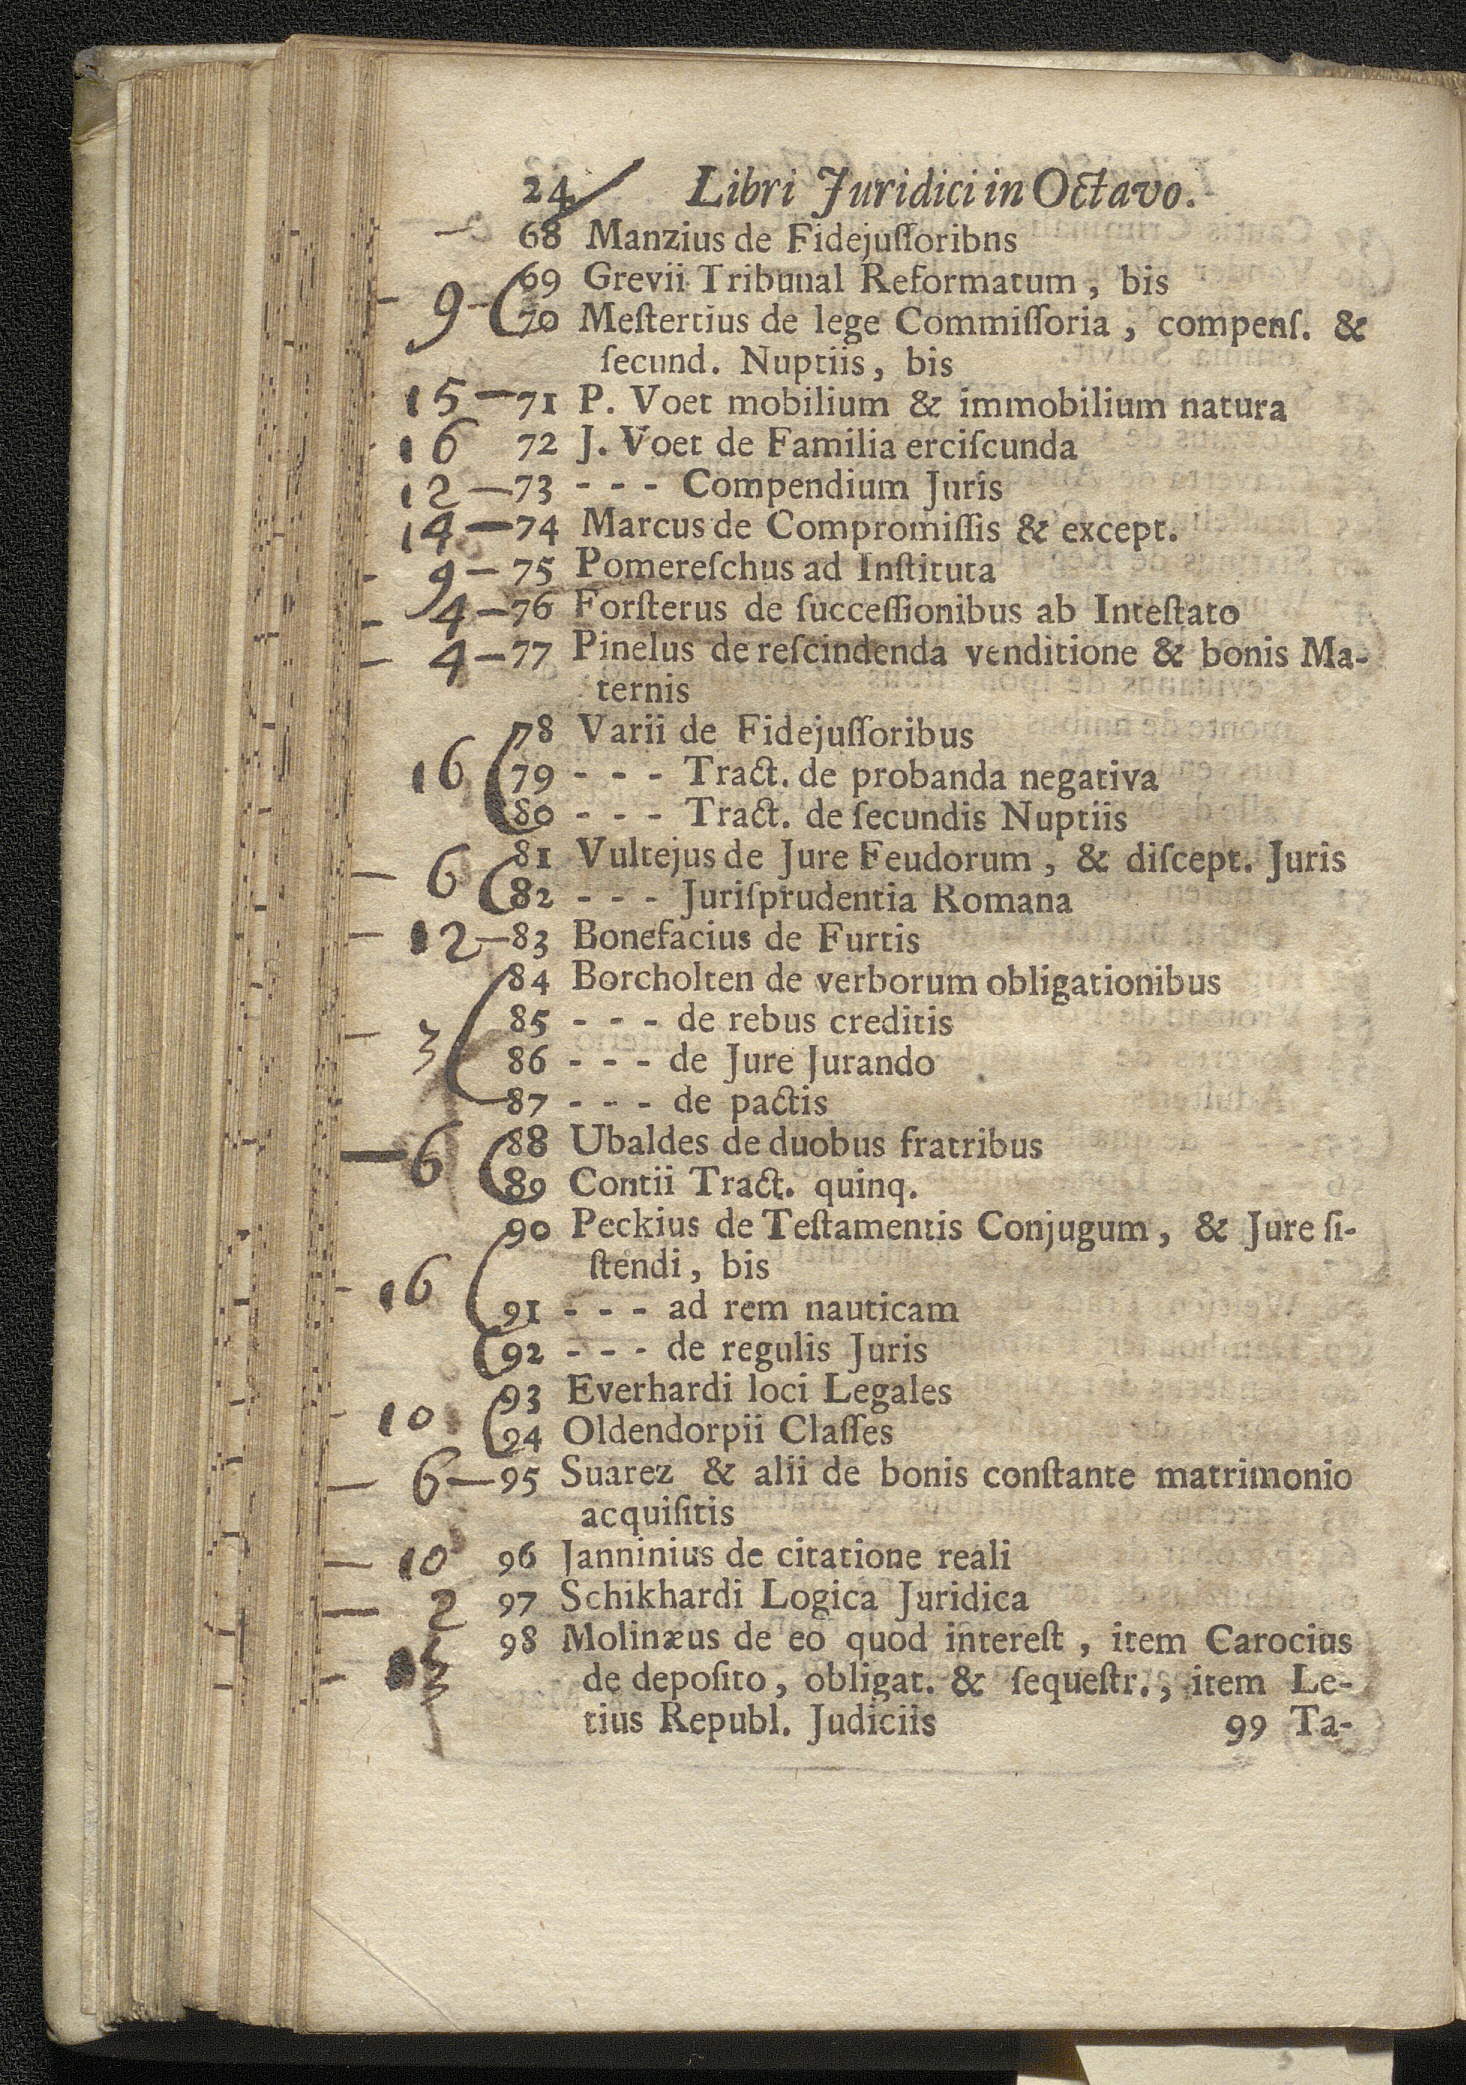 24 Libri Juridici in Octavo.
68 Manzius de Fidejuſſoribns
9 69 Grevii Tribunal Reformatum, bis
70 Meſtertius de lege Commiſſoria, compenſ. &
ſecund. Nuptiis, bis
15 — 71 P. Voet mobilium & immobilium natura
16 72 J. Voet de Familia erciſcunda
12 — 73 - - - Compendium Juris
14 — 74 Marcus de Compromiſſis & except.
9 — 75 Pomereſchus ad Inſtituta
4 — 76 Forſterus de ſucceſſionibus ab Inteſtato
4 — 77 Pinelus de reſcindenda venditione & bonis Ma-
ternis
78 Varii de Fidejuſſoribus
16 79 - - - Tract. de probanda negativa
80 - - - Tract. de ſecundis Nuptiis
6 81 Vultejus de Jure Feudorum, & diſcept. Juris
82 - - - Juriſprudentia Romana
12 — 83 Bonefacius de Furtis
84 Borcholten de verborum obligationibus
3 85 - - - de rebus creditis
86 - - - de Jure Jurando
87 - - - de pactis
— 6 88 Ubaldes de duobus fratribus
89 Contii Tract. quinq.
90 Peckius de Teſtamentis Conjugum, & Jure ſi-
ſtendi, bis
16 91 - - - ad rem nauticam
92 - - - de regulis Juris
10 93 Everhardi loci Legales
94 Oldendorpii Claſſes
6 — 95 Suarez & alii de bonis conſtante matrimonio
acquiſitis
10 96 Janninius de citatione reali
2 97 Schikhardi Logica Juridica
98 Molinæus de eo quod intereſt, item Carocius
de depoſito, obligat. & ſequeſtr., item Le-
tius Republ. Judiciis 99 Ta-